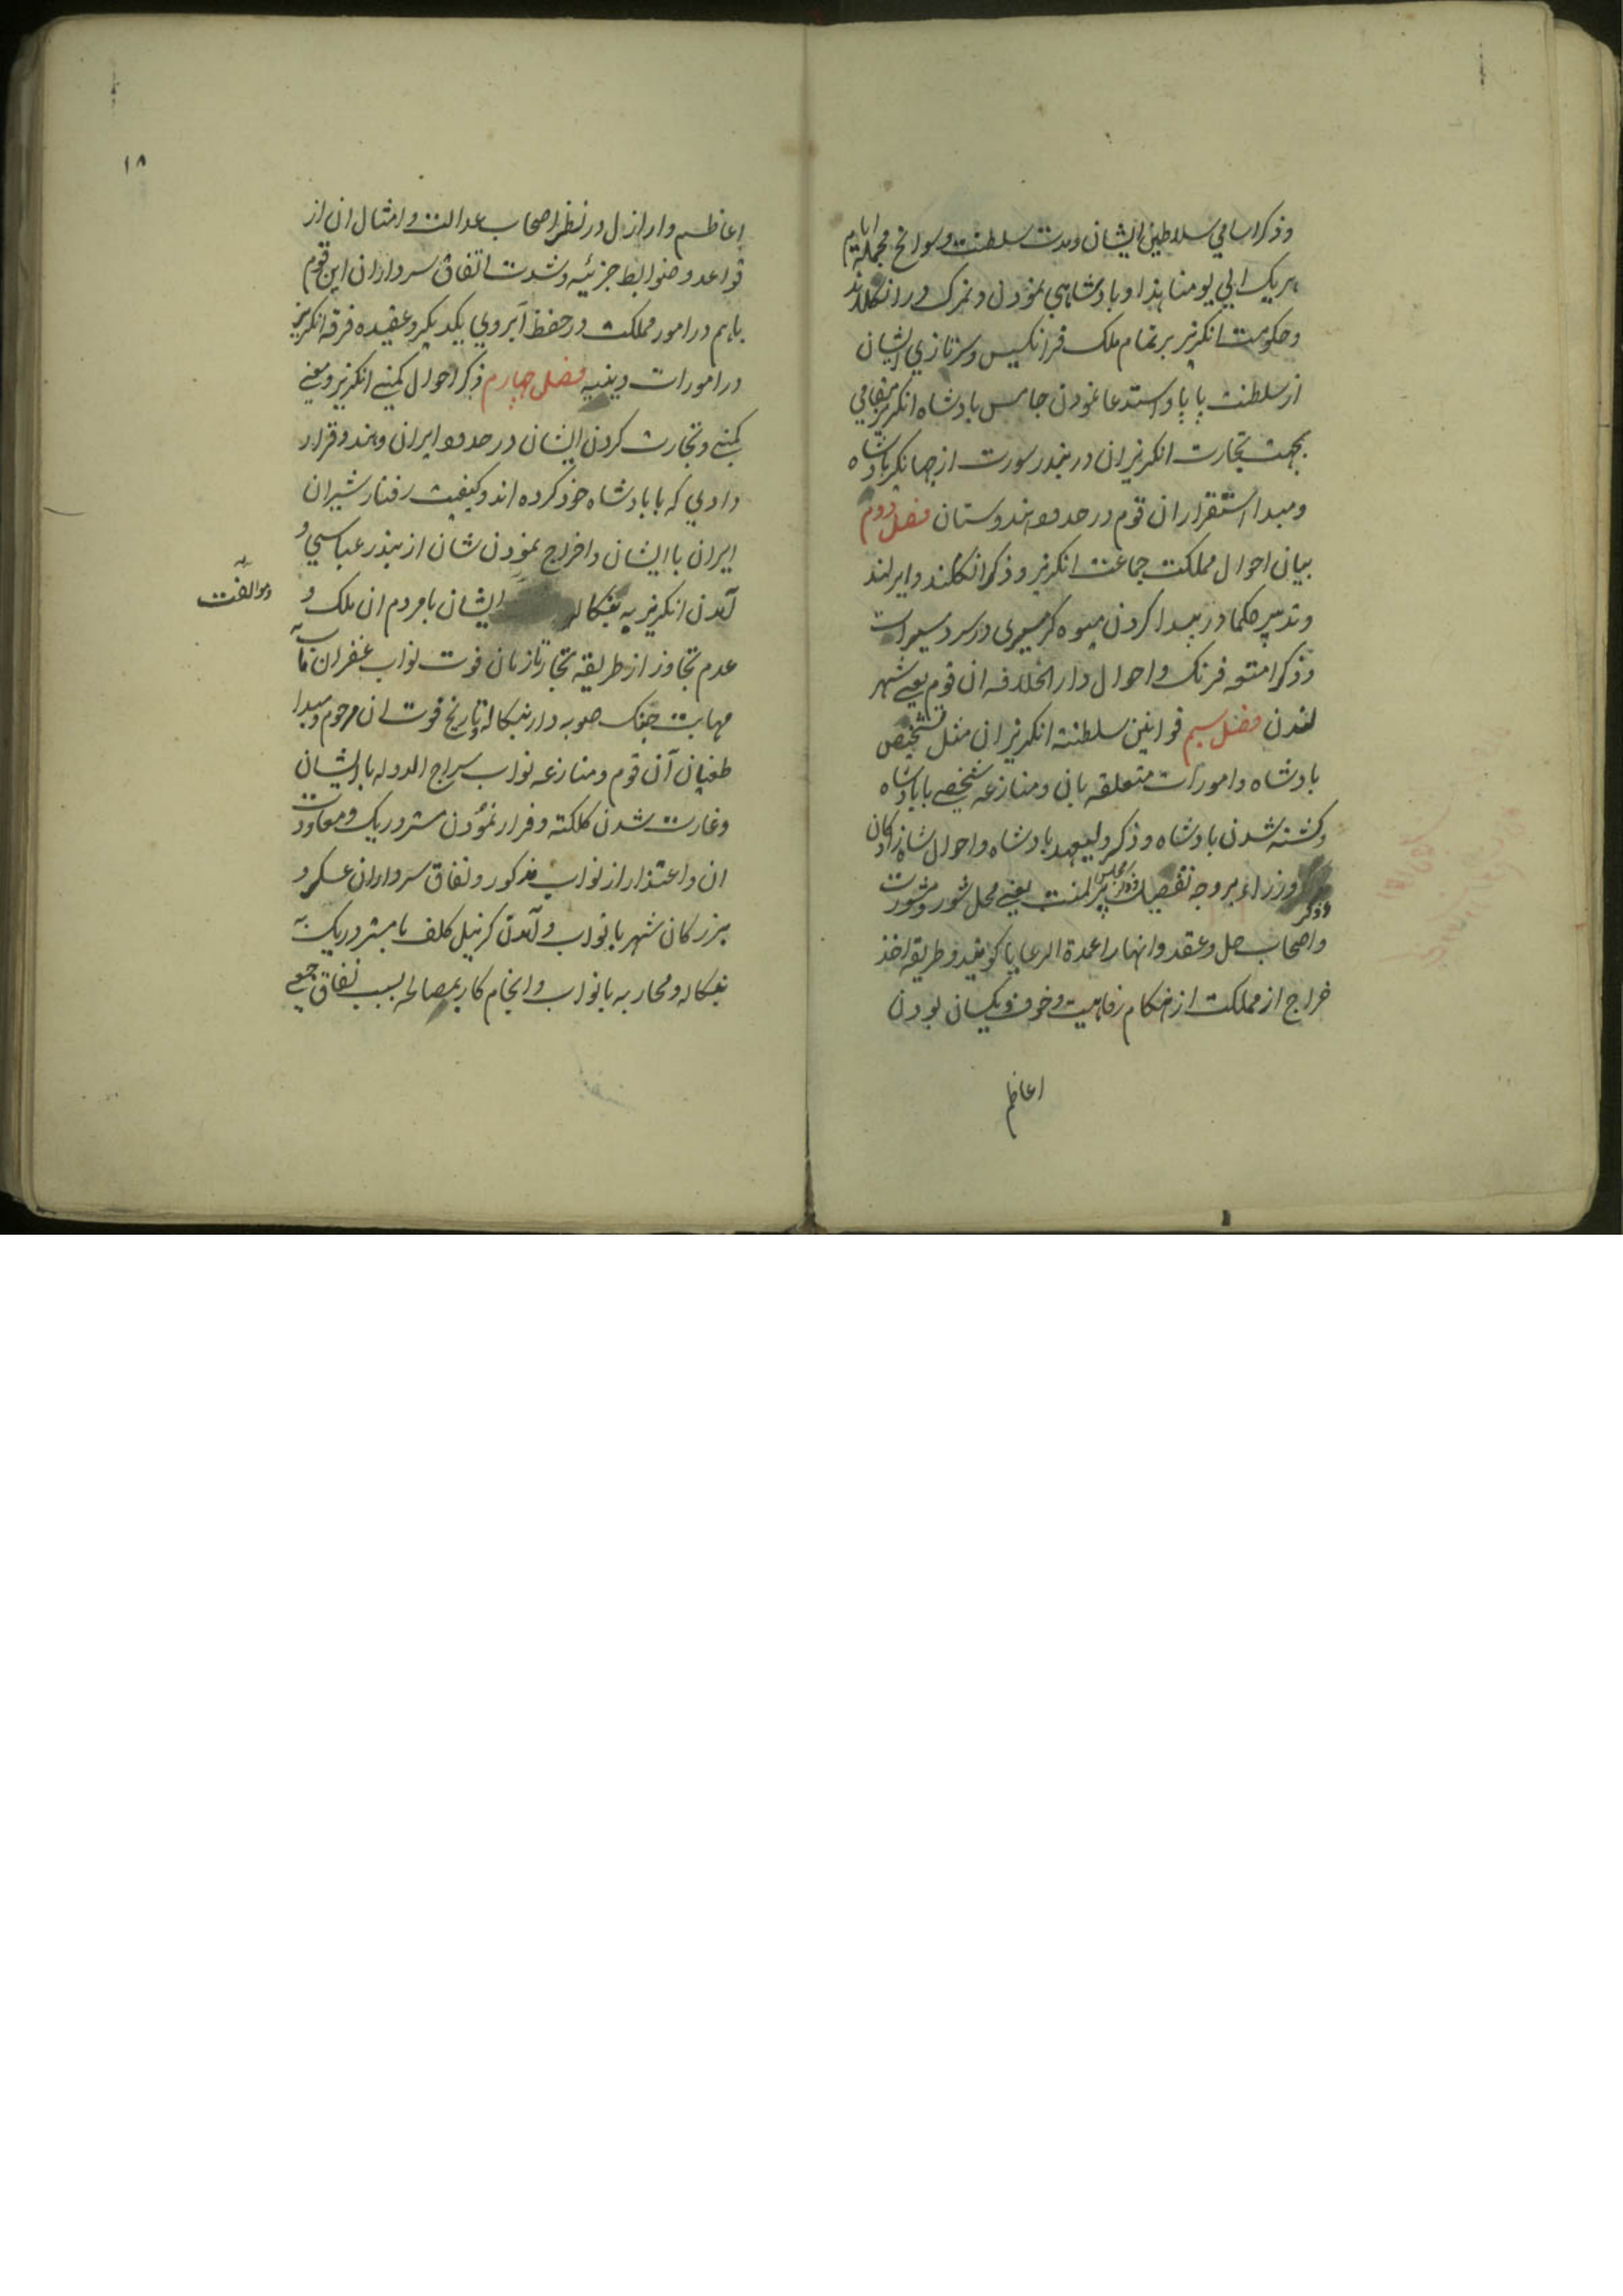 وذکر اسامي سلاطين ايشان ومدت سلطنت وسوانح مجمله ايام
هريک الي يومنا هذا و بادشاهي نمودن دنمرک در انکلاند
وحکومت انکريز بر تمام ملک فرانکيس وسرتازي ايشان
از سلطنت پاپا واستدعا نمودن جامس بادشاه انکريز مقامي
بجهت تجارت انکريزان در بندر سورت از جهانکير بادشاه
ومبدا استقرار ان قوم در حدود هندوستان فصل دوم
بيان احوال مملکت جماعت انکريز و ذکر انکلند و ايرلند
وتدبير حکما در پيدا کردن ميوه کرمسيري در سردسيرات
وذکر امتعه فرنک و احوال دار الخلافه ان قوم يعني شهر
لندن فصل سيم قوانين سلطنته انکريزان مثل تشخيص
بادشاه وامورات متعلقه بان ومنازعه شخصي با بادشاه
وکشته شدن بادشاه وذکر وليعهد بادشاه واحوال شاهزادکان
وزراء بر وجه تفصيل وذکر مجلس پرلمنت يعني محل شور ومشورت
وذکر
واصحاب حل وعقد وانها را عمدة الرعايا کويند وطريقه اخذ
خراج از مملکت از هنکام رفاهيت وخوف ويکسان بودن
اعاظم
۱۸
اعاظم و اراذل در نظر اصحاب عدالت و امثال ان از
قواعد و ضوابط جزئيه وشدت اتفاق سرداران اين قوم
باهم در امور مملکت در حفظ آبروي يکديکر وعقيده فرقه انکريز
در امورات دينيه فصل چهارم ذکر احوال کمپني انکريز ومعني
کمپني وتجارت کردن ايشان در حدود ايران وهند وقرار
دادي که با بادشاه خود کرده اند وکيفيت رفتار شيران
ايران با ايشان واخراج نمودن شان از بندر عباسي و
آمدن انکريز به بنکاله ايشان با مردم ان ملک و
وموالفت
عدم تجاوز از طريقه تجار تا زمان فوت نواب غفران مآب
مهابت جنک صوبه دار بنکاله وتاريخ فوت ان مرحوم ومبدا
طغيان آن قوم ومنازعه نواب سراج الدوله با ايشان
وغارت شدن کلکته وفرار نمودن مستر دريک ومعاودت
ان واعتذار از نواب مذکور ونفاق سرداران عسکر و
بزرکان شهر با نواب و آمدن کرنيل کلف با مستر دريک به
بنکاله ومحاربه با نواب و انجام کار بمصالحه بسبب نفاق جمعي